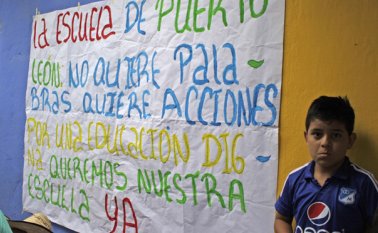 la ESCUELA DE PUERTO
LEÓN. NO QUIERE Pala-
BRAS QUIERE ACCIONES
POR UNA EDUCACIÓN DIG-
NA QUEREMOS NUESTRA
ESCUELA YA
pepsi